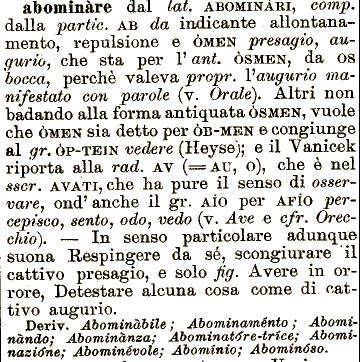 abominàre dal lat. ABOMINÀRI, comp.
dalla partic. AB da indicante allontana-
mento, repulsione e ÒMEN presagio, au-
gurio, che sta per l'ant. ÒSMEN, da os
bocca, perchè valeva propr. l'augurio ma-
nifestato con parole (v. Orale). Altri non
badando alla forma antiquata ÒSMEN, vuole
che ÒMEN sia detto per ÒB-MEN e congiunge
al gr. ÒP-TEIN vedere (Heyse); e il Vanicek
riporta alla rad. AV (= AU, O), che è nel
sscr. AVATI, che ha pure il senso di osser-
vare, ond'anche il gr. AÍO per AFÍO per-
cepisco, sento, odo, vedo (v. Ave e cfr. Orec-
chio). — In senso particolare adunque
suona Respingere da sé, scongiurare il
cattivo presagio, e solo fig. Avere in or-
rore, Detestare alcuna cosa come di cat-
tivo augurio.
Deriv. Abominàbile; Abominaménto; Abomi-
nàndo; Abominànza; Abominatóre-tríce; Abomi-
nazióne; Abominévole; Abomínio; Abominóso.